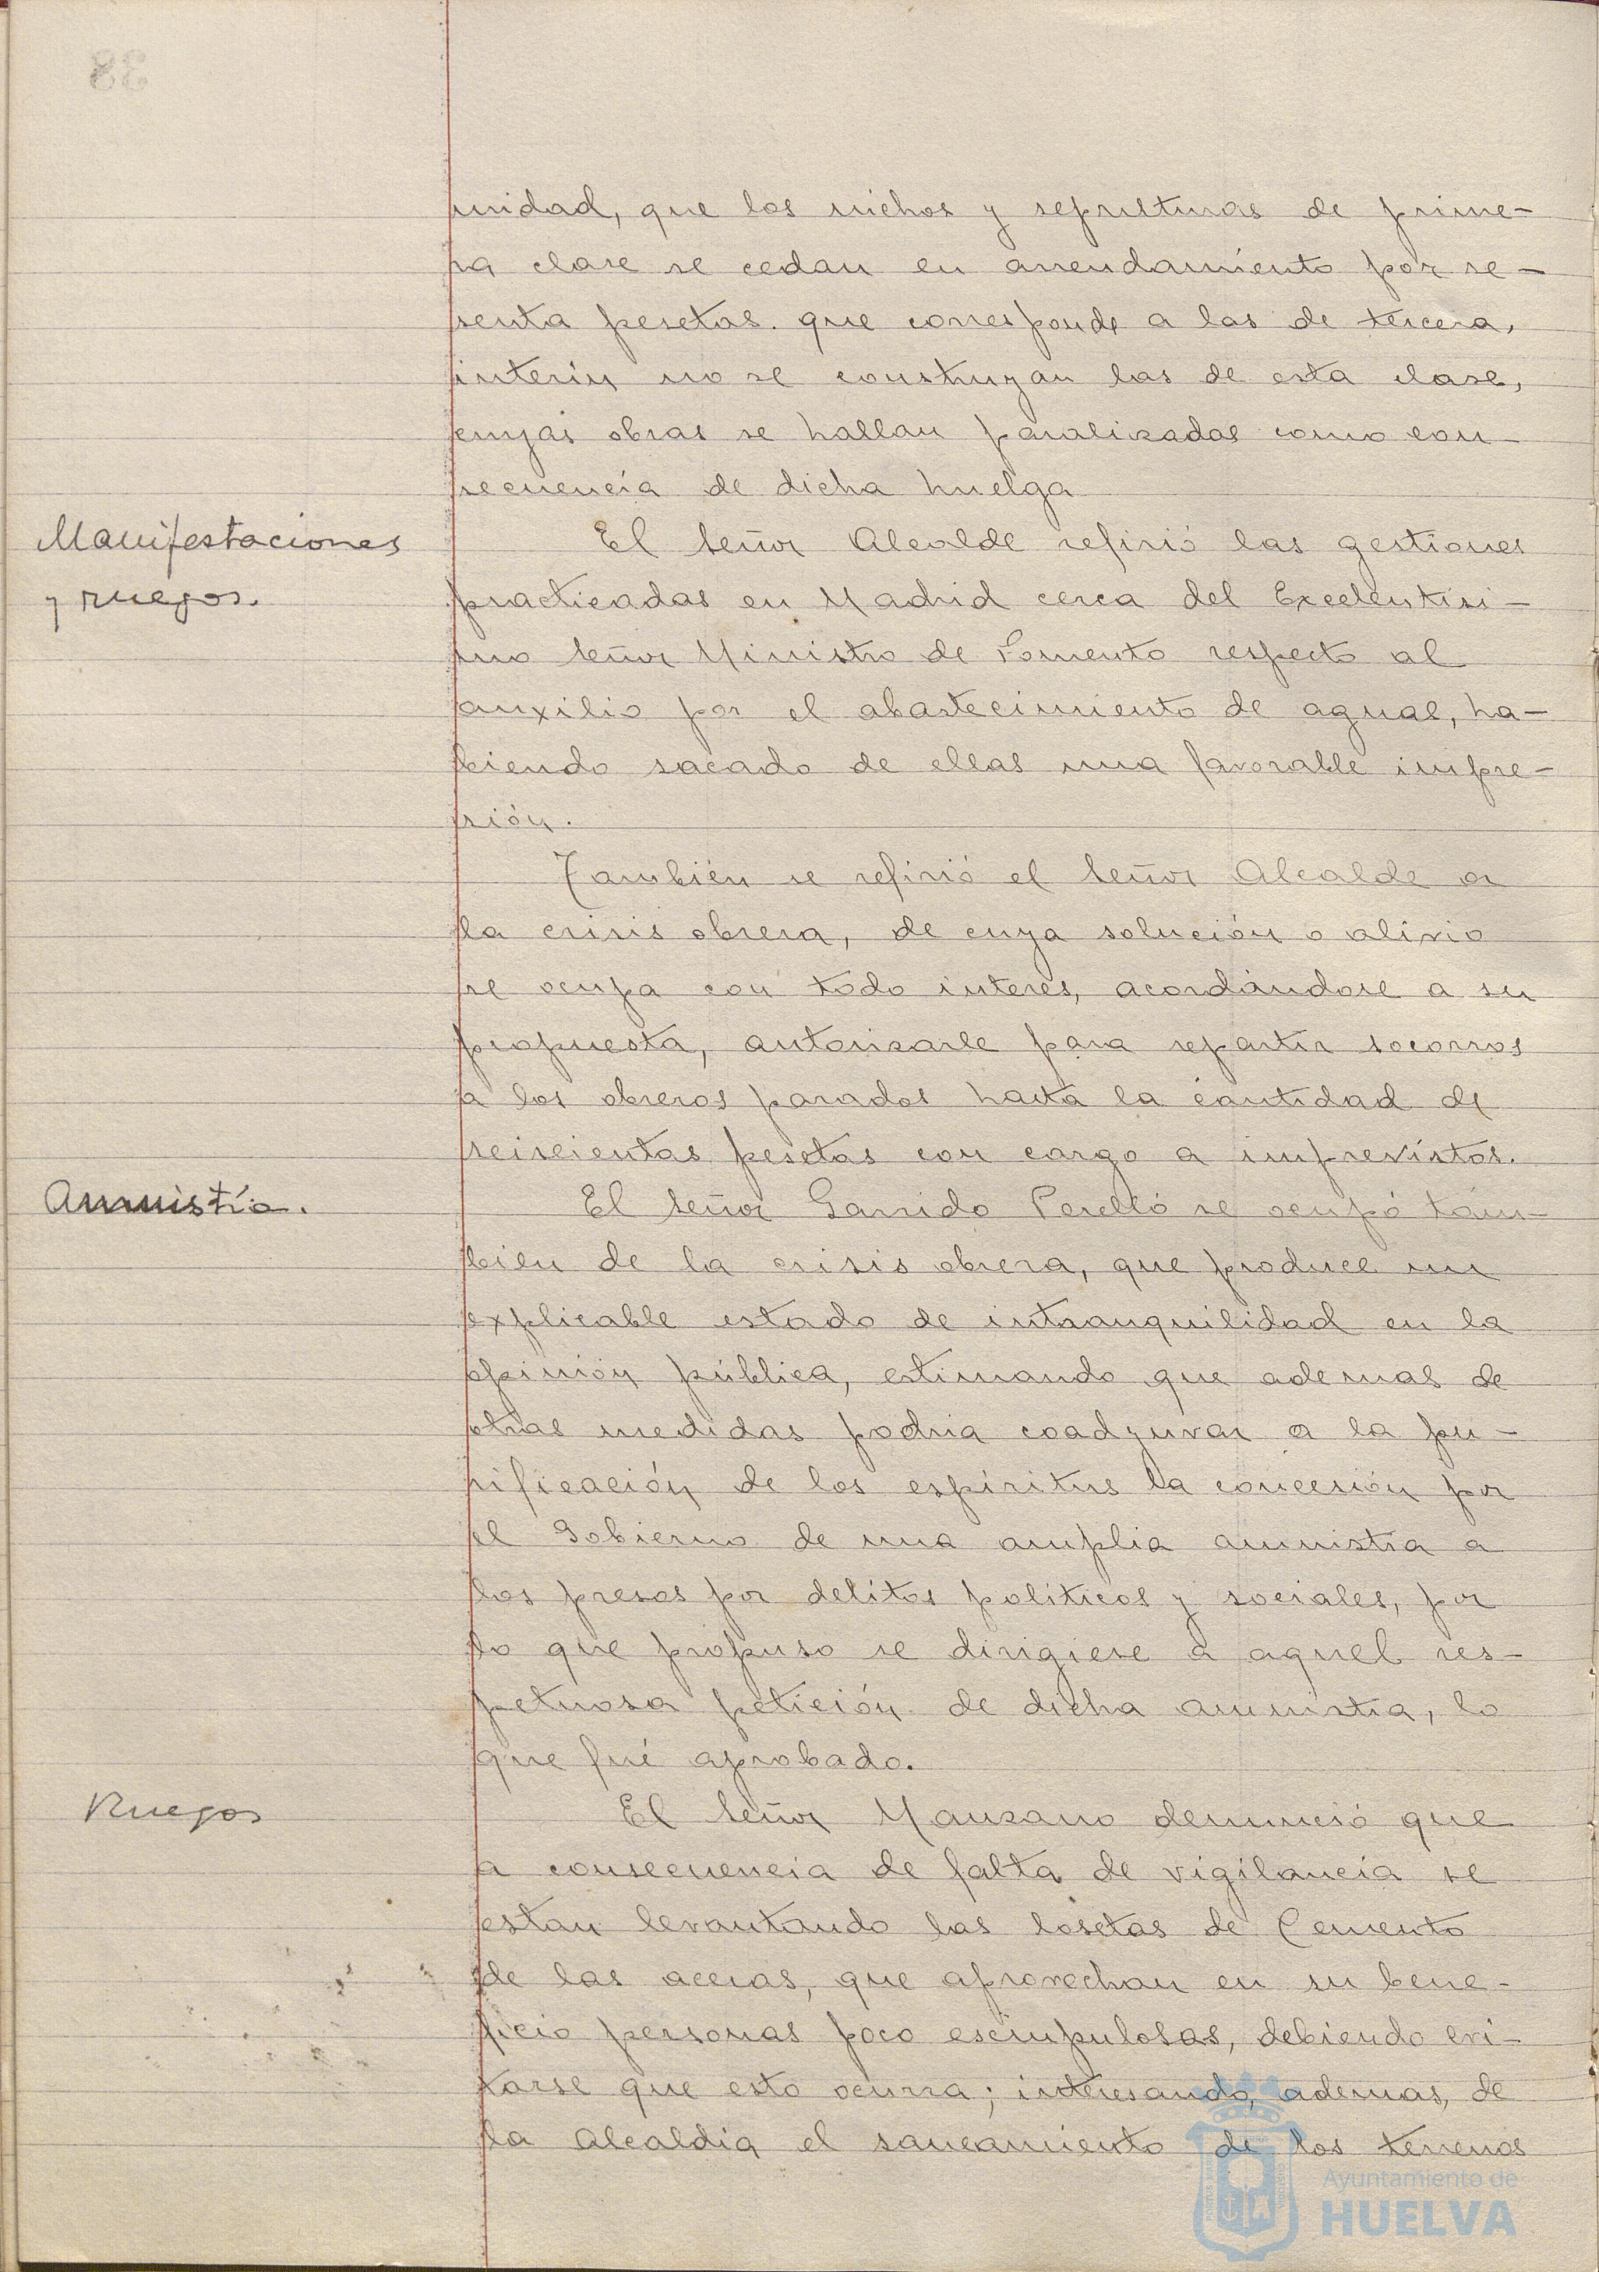 unidad, que los nichos y sepulturas de prime-
ra clase se cedan en arrendamiento por se-
senta pesetas. que corresponde a las de tercera,
interin no se construyan las de esta clase,
cuyas obras se hallan paralizadas como con-
secuencia de dicha huelga
Manifestaciones
y ruegos.
El Señor Alcalde refirió las gestiones
practicadas en Madrid cerca del Excelentisi-
mo Señor Ministro de Fomento respecto al
auxilio por el abastecimiento de aguas, ha-
biendo sacado de ellas una favorable impre-
sión.
También se refirió el Señor Alcalde a
la crisis obrera, de cuya solución o alivio
se ocupa con todo interes, acordándose a su
propuesta, autorizarle para repartir socorros
a los obreros parados hasta la cantidad de
seiscientas pesetas con cargo a imprevistos.
Amnistía.
El Señor Garrido Perelló se ocupó tam-
bien de la crisis obrera, que produce un
explicable estado de intranquilidad en la
opinión pública, estimando que ademas de
otras medidas podria coadyuvar a la pu-
rificación de los espíritus la concesión por
el Gobierno de una amplia amnistia a
los presos por delitos políticos y sociales, por
lo que propuso se dirigiese a aquel res-
petuosa petición de dicha amnistia, lo
que fué aprobado.
Ruegos
El Señor Manzano denunció que
a consecuencia de falta de vigilancia se
estan levantando las losetas de Cemento
de las aceras, que aprovechan en su bene-
ficio personas poco escrupulosas, debiendo evi-
tarse que esto ocurra; interesando, ademas, de
la Alcaldia el saneamiento de los terrenos
Ayuntamiento de
HUELVA